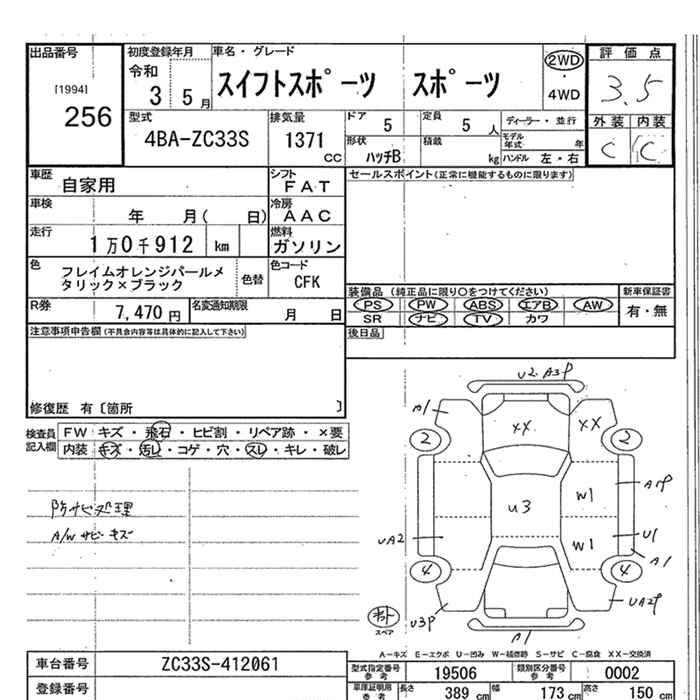 出品番号 初度登録年月 車名・グレード 評価点
[1994] 256
令和 3 5月
スイフトスポーツ スポーツ
2WD・4WD
3.5
型式 4BA-ZC33S
排気量 1371 CC
ドア 5 定員 5 人
ディーラー・並行
形状 ハッチB 積載 kg
モデル年式 年
ハンドル 左・右
外装 内装
C C
車歴 自家用 シフト FAT
セールスポイント(正常に機能するものに限ります)
車検 年 月( 日) 冷房 AAC
走行 1万0千912 km 燃料 ガソリン
色 フレイムオレンジパールメタリック×ブラック 色替 色コード CFK
装備品(純正品に限り○をつけてください) 新車保証書
PS PW ABS エアB AW 有・無
SR ナビ TV カワ
R券 7,470円 名変通知期限 月 日
後日品
注意事項申告欄(不具合内容等は具体的に記入して下さい)
修復歴 有〔箇所 〕
検査員記入欄
FW キズ・飛石・ヒビ割・リペア跡・×要
内装 キズ・汚レ・コゲ・穴・スレ・キレ・破レ
防サビ処理
A/W サビ キズ
U2・A3P
A1
XX XX
2 2
A1P
W1
U3
UA2
U1
W1
A1
4 4
UA2P
U3P
A1
スペア
A-キズ E-エクボ U-凹み W-補修跡 S-サビ C-腐食 XX-交換済
車台番号 ZC33S-412061
型式指定番号 参考 19506 類別区分番号 参考 0002
登録番号
車庫証明用 参考 長さ 389 cm 幅 173 cm 高さ 150 cm